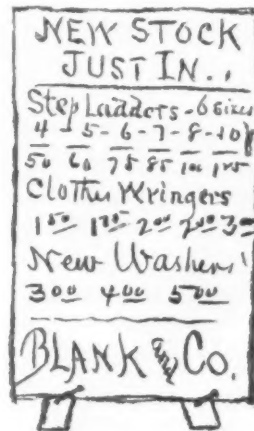 NEW STOCK
JUST IN..
Step Ladders - 6 Sizes
4 - 5 - 6 - 7 - 8 - 10
50 60 75 85 1.00 1.25
Clothes Wringers
1 50 2 00 3 00
New Washers
3 00 4 00 5 00
BLANK & Co.